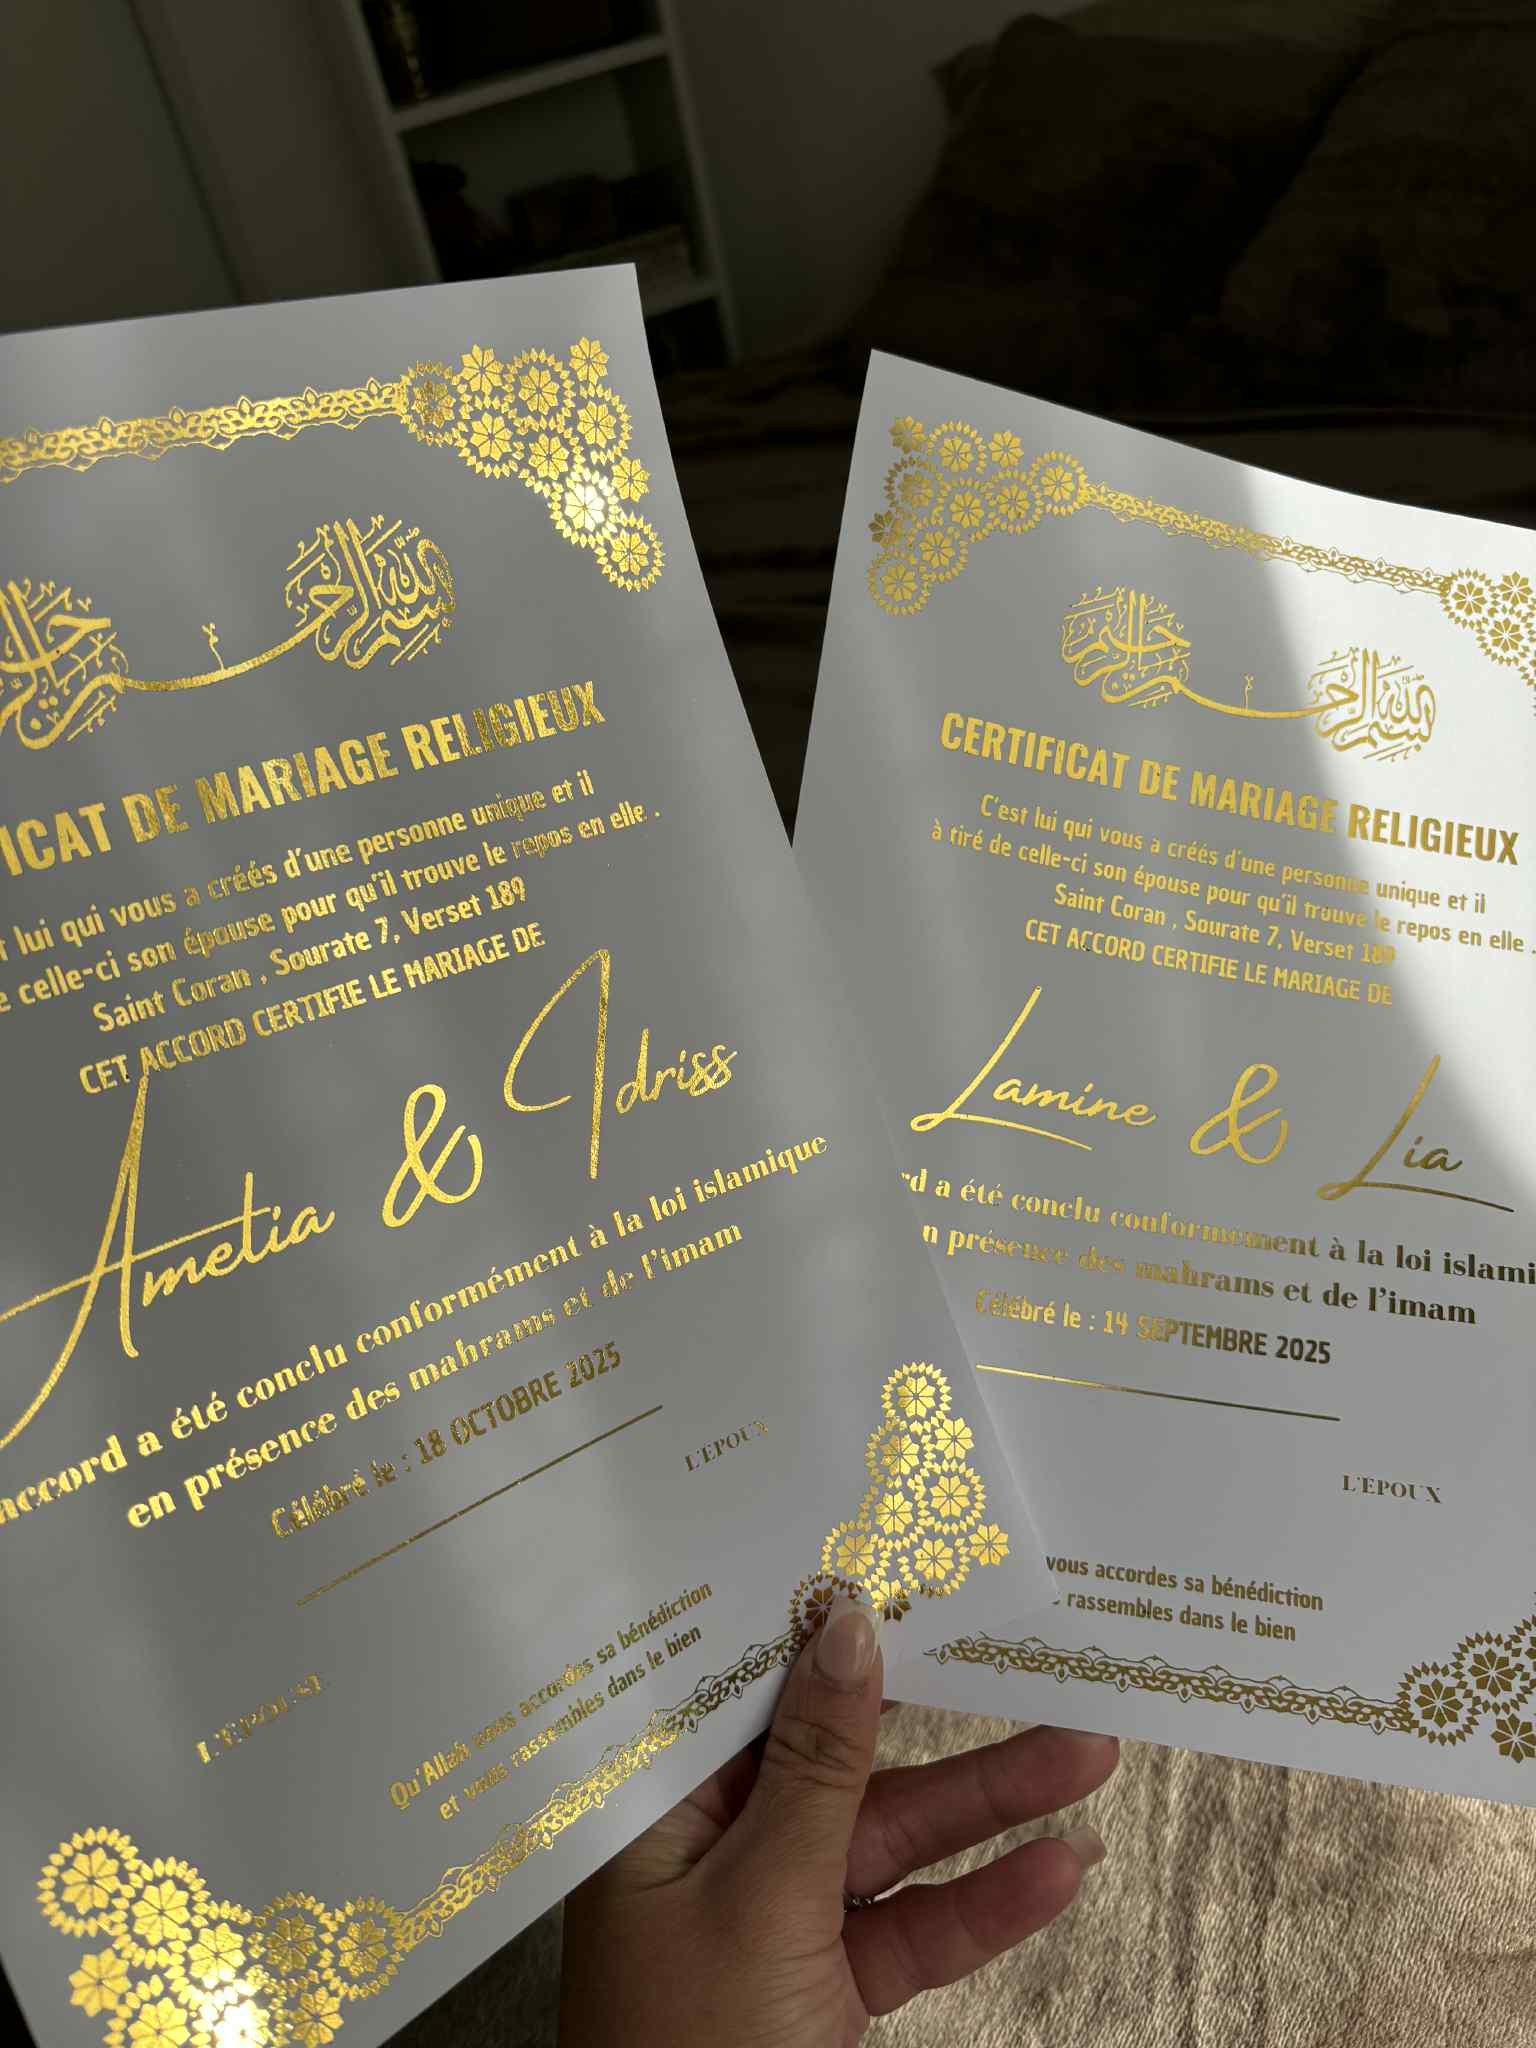 بسم الله الرحمن الرحيم
ICAT DE MARIAGE RELIGIEUX
lui qui vous a créés d'une personne unique et il
celle-ci son épouse pour qu'il trouve le repos en elle .
Saint Coran , Sourate 7, Verset 189
CET ACCORD CERTIFIE LE MARIAGE DE
Amelia & Idriss
accord a été conclu conformément à la loi islamique
en présence des mahrams et de l'imam
Célébré le : 18 OCTOBRE 2025
L'EPOUX
L'EPOUSE
Qu'Allah vous accordes sa bénédiction
et vous rassembles dans le bien
بسم الله الرحمن الرحيم
CERTIFICAT DE MARIAGE RELIGIEUX
C'est lui qui vous a créés d'une personne unique et il
à tiré de celle-ci son épouse pour qu'il trouve le repos en elle .
Saint Coran , Sourate 7, Verset 189
CET ACCORD CERTIFIE LE MARIAGE DE
Lamine & Lia
rd a été conclu conformement à la loi islami
n présence des mahrams et de l'imam
Célébré le : 14 SEPTEMBRE 2025
L'EPOUX
vous accordes sa bénédiction
rassembles dans le bien